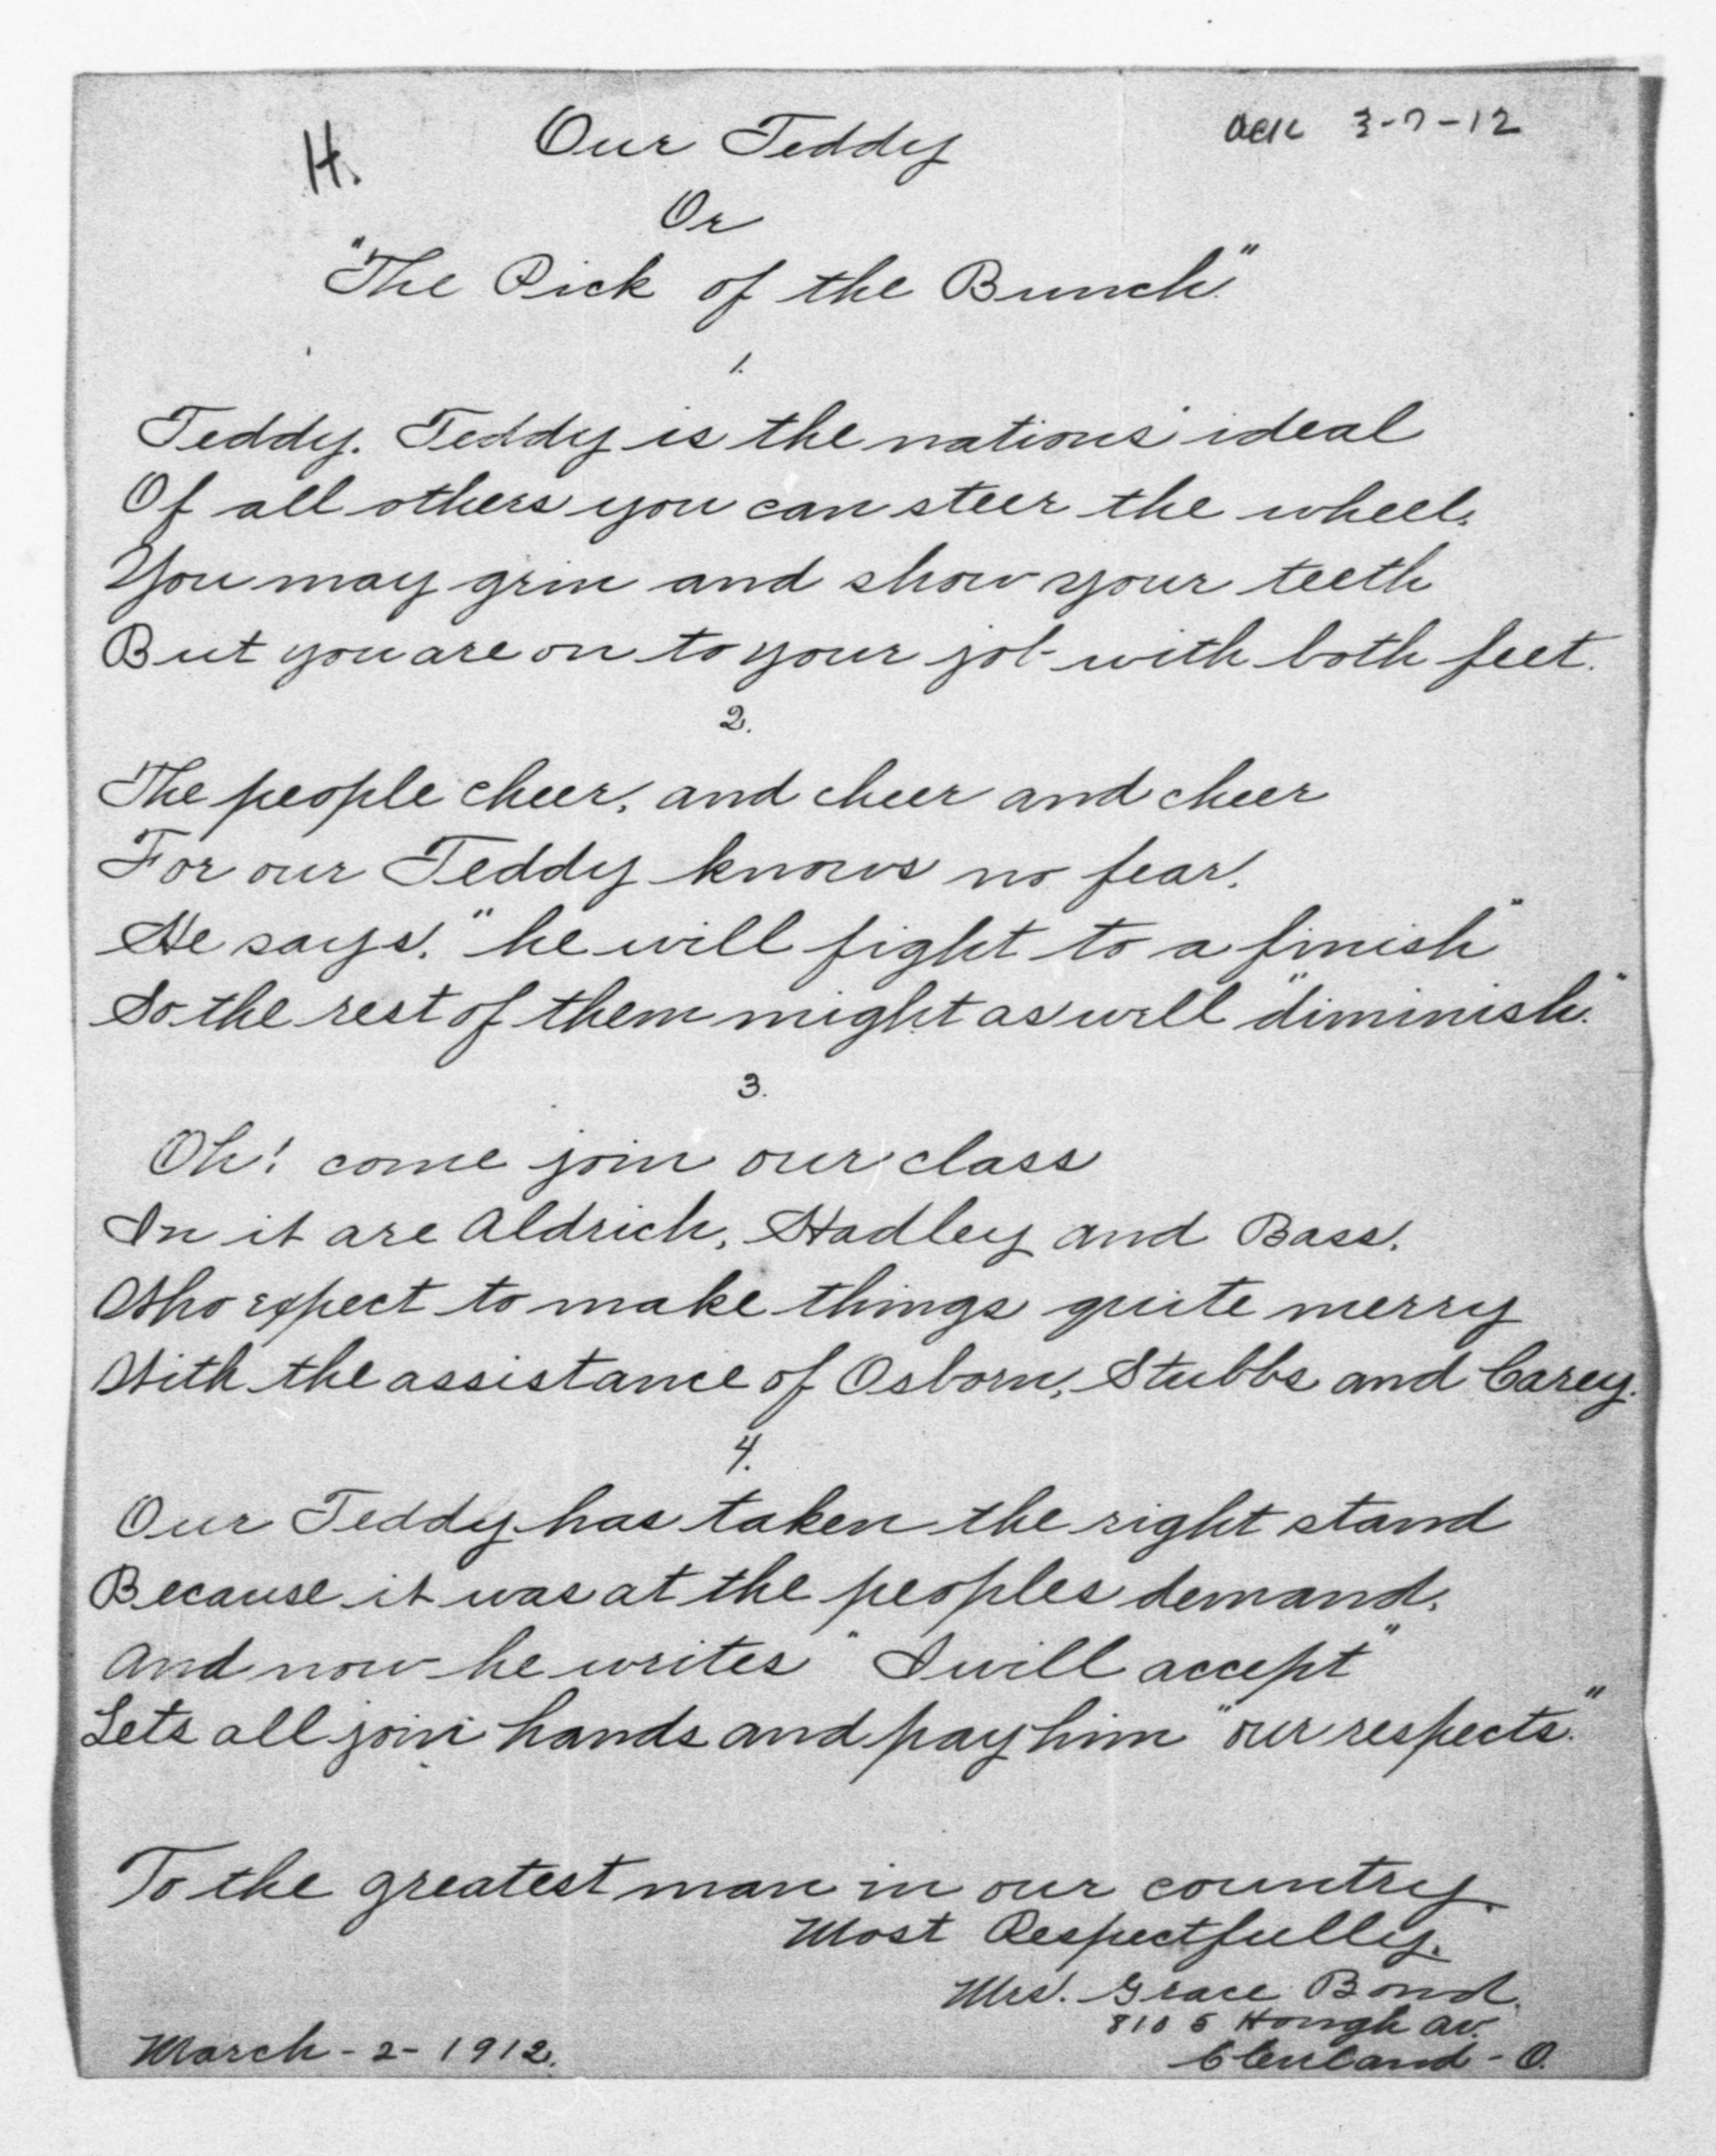 H.
Our Teddy
ack 3-7-12
Or
"The Pick of the Bunch."
1.
Teddy. Teddy is the nations' ideal
Of all others you can steer the wheel.
You may grin and show your teeth
But you are on to your job with both feet.
2.
The people cheer, and cheer and cheer
For our Teddy knows no fear.
He says. "he will fight to a finish"
So the rest of them might as well "diminish."
3.
Oh! come join our class
In it are Aldrich, Hadley and Bass.
Who expect to make things quite merry
With the assistance of Osborn, Stubbs and Carey.
4.
Our Teddy has taken the right stand
Because it was at the peoples demand.
And now he writes "I will accept"
Lets all join hands and pay him "our respects."
To the greatest man in our country.
Most Respectfully.
Mrs. Grace Bond.
8105 Hough Av.
Cleveland - O.
March - 2 - 1912.